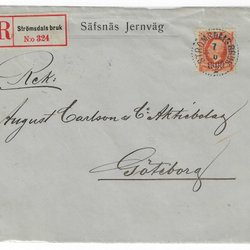 R
Strömsdals bruk
No 324
Säfsnäs Jernväg
STRÖMSDALS BRUK
Rek.
August Carlson & C:o Aktiebolag
Göteborg